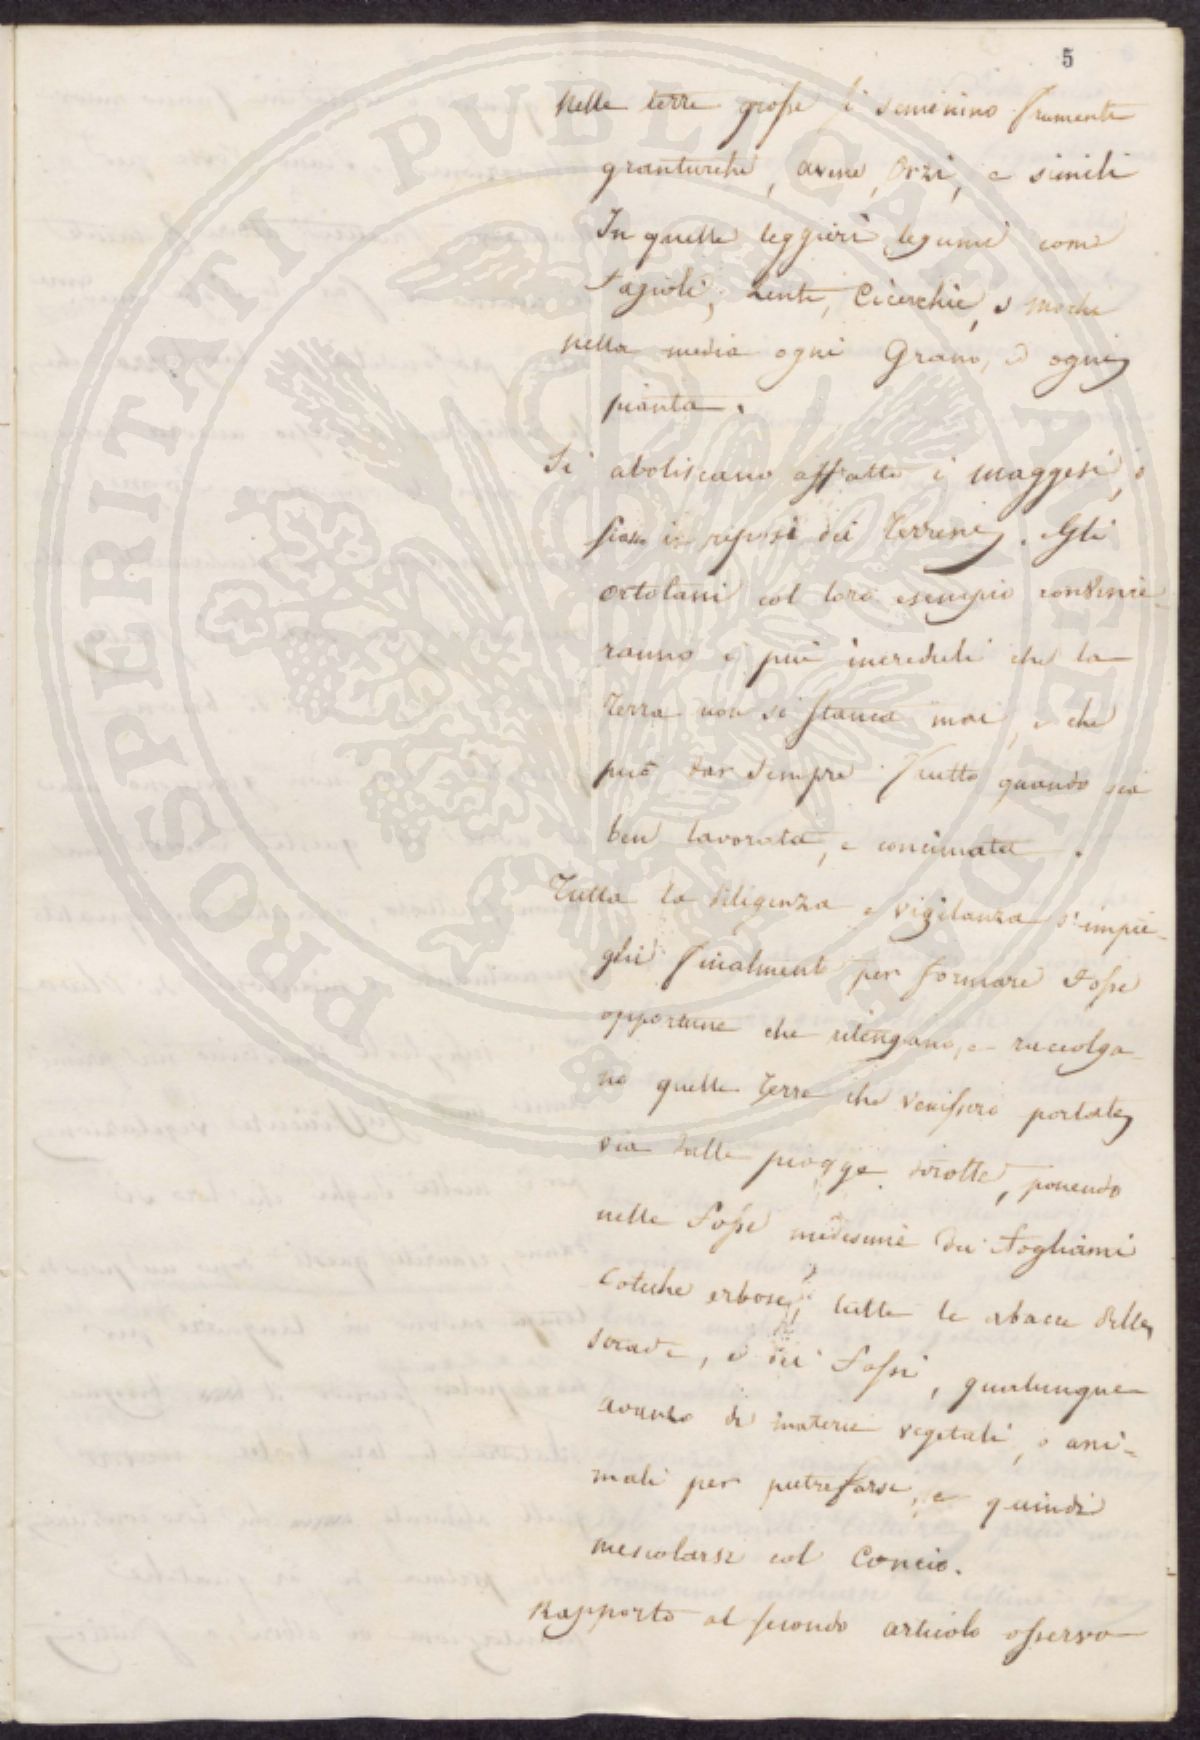 5
Nelle terre grosse si seminino frumenti
granturchi, avene, Orzi, e simili
In quelle leggieri legumi come
Fagioli, Lenti, Cicerchie, e moche
nella media ogni Grano, ed ogni
pianta.
Si aboliscano affatto i maggesi, o
siano i riposi dei Terreni. Gli
ortolani col loro esempio convince-
ranno i più increduli che la
Terra non si stanca mai, e che
può dar sempre frutto quando sia
ben lavorata, e concimata.
Tutta la diligenza e vigilanza s'impie-
ghi finalmente per formare Fosse
opportune che ritengano, e raccolga-
no quelle Terre che venissero portate
via dalle piogge dirotte, ponendo
nelle Fosse medesime dei Fogliami
Cotiche erbose, tutte le abacce delle
strade, e dei Fossi, qualunque
avanzo di materie vegetali, o ani-
mali per putrefarsi, e quindi
mescolarsi col Concio.
Rapporto al secondo articolo osservo
PROSPERITATI PVBLICAE AVGENDAE